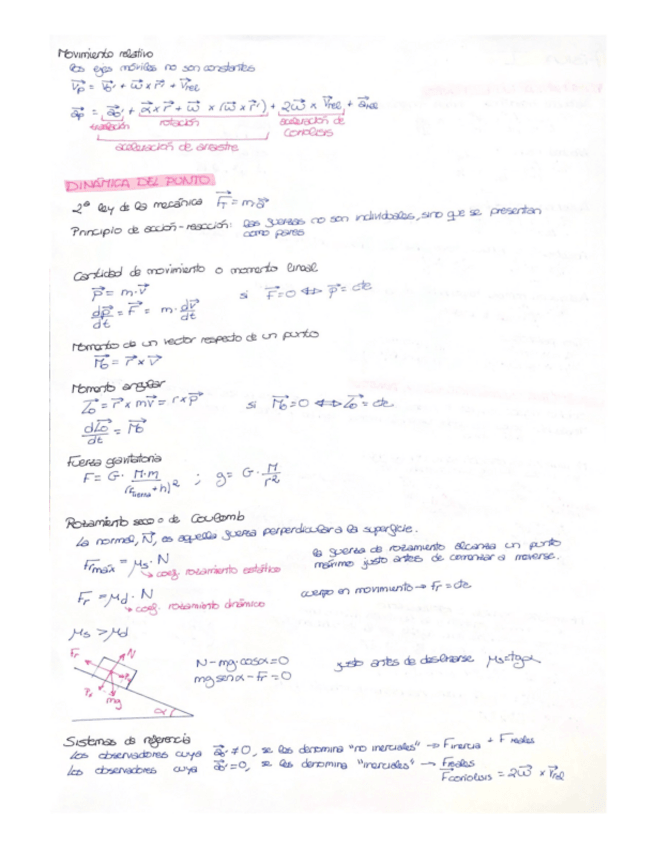 Movimiento relativo
los ejes móviles no son constantes
v⃗p = v⃗o' + ω⃗ x r⃗' + v⃗rel
a⃗p = a⃗o' + α⃗ x r⃗' + ω⃗ x (ω⃗ x r⃗') + 2ω⃗ x v⃗rel + a⃗rel
traslación rotación aceleración de Coriolisis
aceleración de arrastre
DINÁMICA DEL PUNTO
2ª ley de la mecánica F⃗ = m·a⃗
Principio de acción-reacción: las fuerzas no son individuales, sino que se presentan
como pares
Cantidad de movimiento o momento lineal
p⃗ = m·v⃗ si F⃗=0 ⇔ p⃗ = cte
dp⃗/dt = F⃗ = m · dv⃗/dt
Momento de un vector respecto de un punto
M⃗o = r⃗ x v⃗
Momento angular
L⃗o = r⃗ x mv⃗ = r x p⃗ si M⃗o=0 ⇔ L⃗o = cte
dL⃗o/dt = M⃗o
Fuerza gravitatoria
F = G · M·m/(rtierra + h)² ; g = G · M/r²
Rozamiento seco o de Coulomb
La normal, N⃗, es aquella fuerza perpendicular a la superficie.
Frmáx = μs · N la fuerza de rozamiento alcanza un punto
↳ coef. rozamiento estático máximo justo antes de comenzar a moverse.
Fr = μd · N cuerpo en movimiento → Fr = cte
↳ coef. rozamiento dinámico
μs > μd
Fr N
N - mg·cosα = 0 justo antes de deslizarse μs = tgα
mg senα - fr = 0
mg α
Sistemas de referencia
Los observadores cuya a⃗o' ≠ 0, se les denomina "no inerciales" → F inercia + F reales
Los observadores cuya a⃗o' = 0, se les denomina "inerciales" → Freales
F⃗coriolisis = 2ω⃗ x v⃗rel